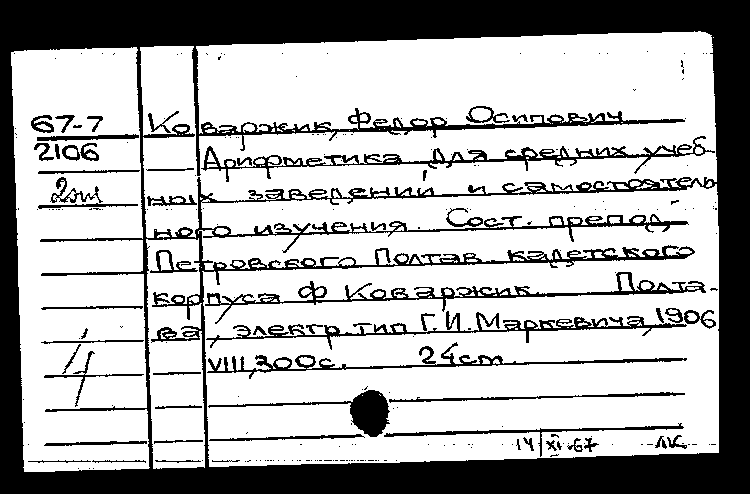 67-7
2106
2 эш
Коваржик, Федор Осипович
Арифметика для средних учеб-
ных заведений и самостоятель-
ного изучения. Сост. препод.
Петровского Полтав. кадетского
корпуса Ф Коваржик. Полта-
ва, электр. тип Г. И. Маркевича, 1906
VIII, 300 с. 24 cm.
14/XI-67 ЛК